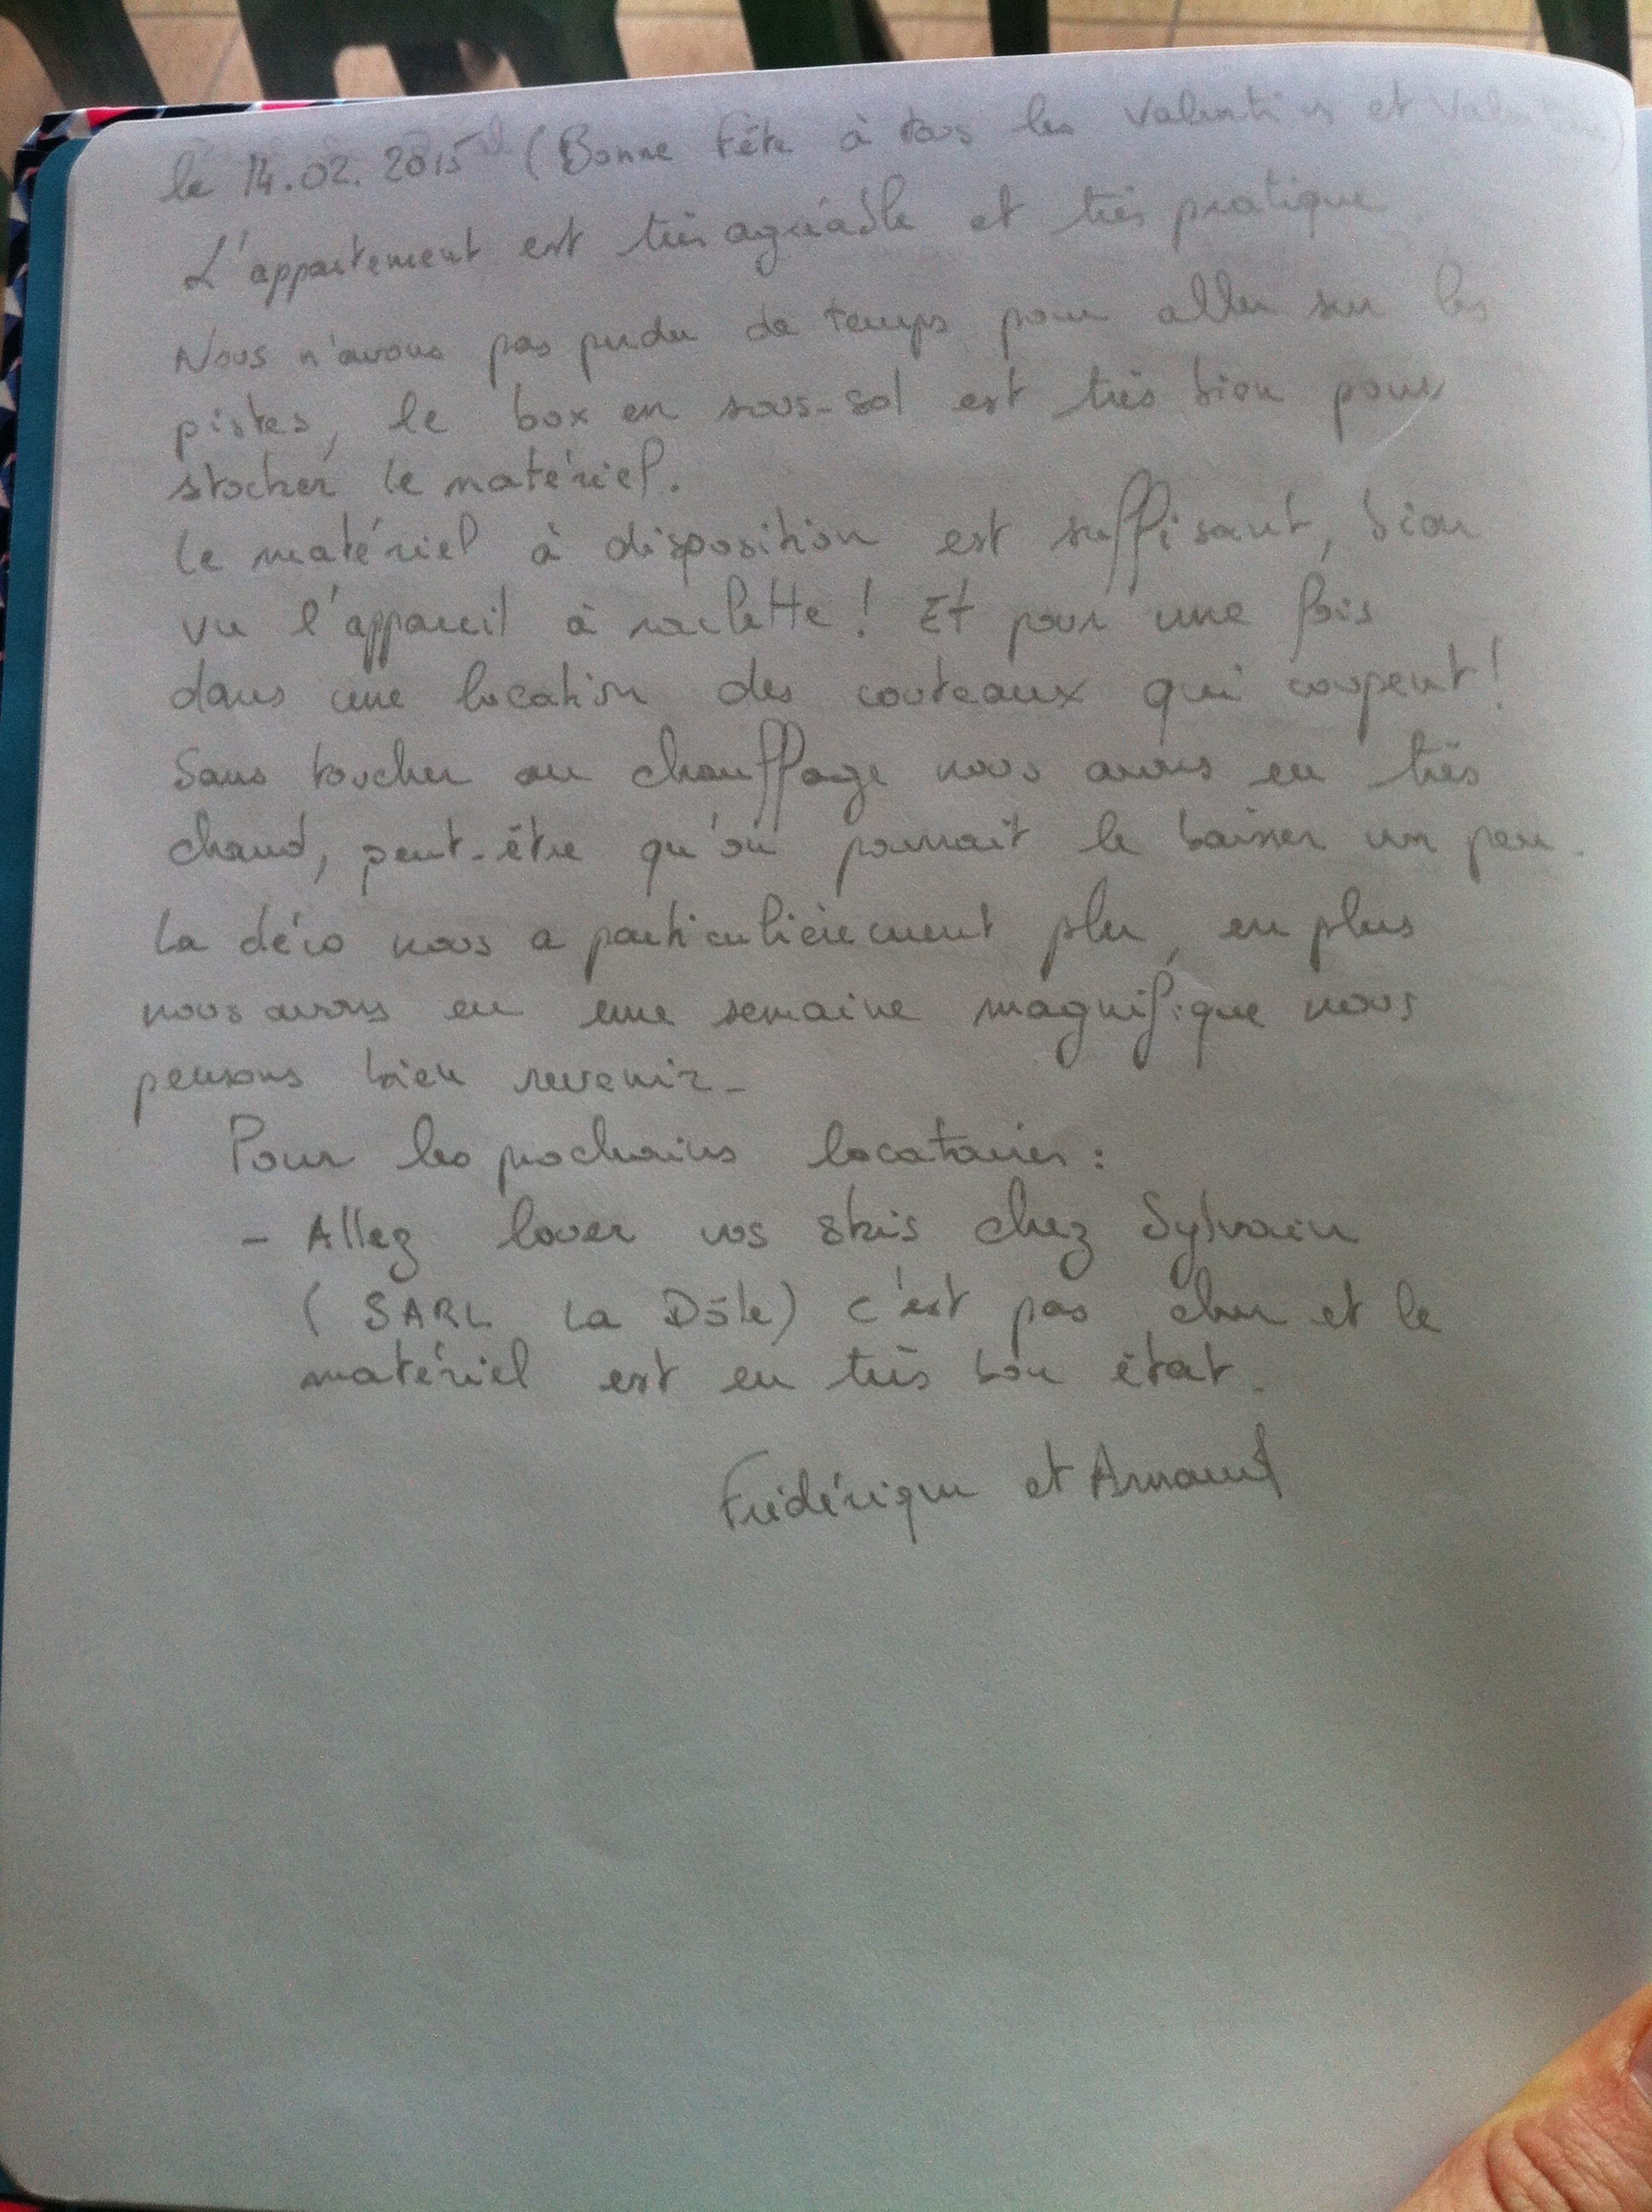 le 14.02.2015 (Bonne Fête à tous les Valentins et Valentines)
L'appartement est très agréable et très pratique
Nous n'avons pas perdu de temps pour aller sur les
pistes, le box en sous-sol est très bien pour
stocker le matériel.
Le matériel à disposition est suffisant, bien
vu l'appareil à raclette ! Et pour une fois
dans une location des couteaux qui coupent !
Sans toucher au chauffage nous avons eu très
chaud, peut-être qu'on pourrait le baisser un peu.
La déco nous a particulièrement plu, en plus
nous avons eu une semaine magnifique nous
pensons bien revenir -
Pour les prochains locataires :
- Allez louer vos skis chez Sylvain
( SARL La Dôle) c'est pas cher et le
matériel est en très bon état.
Frédérique et Arnaud